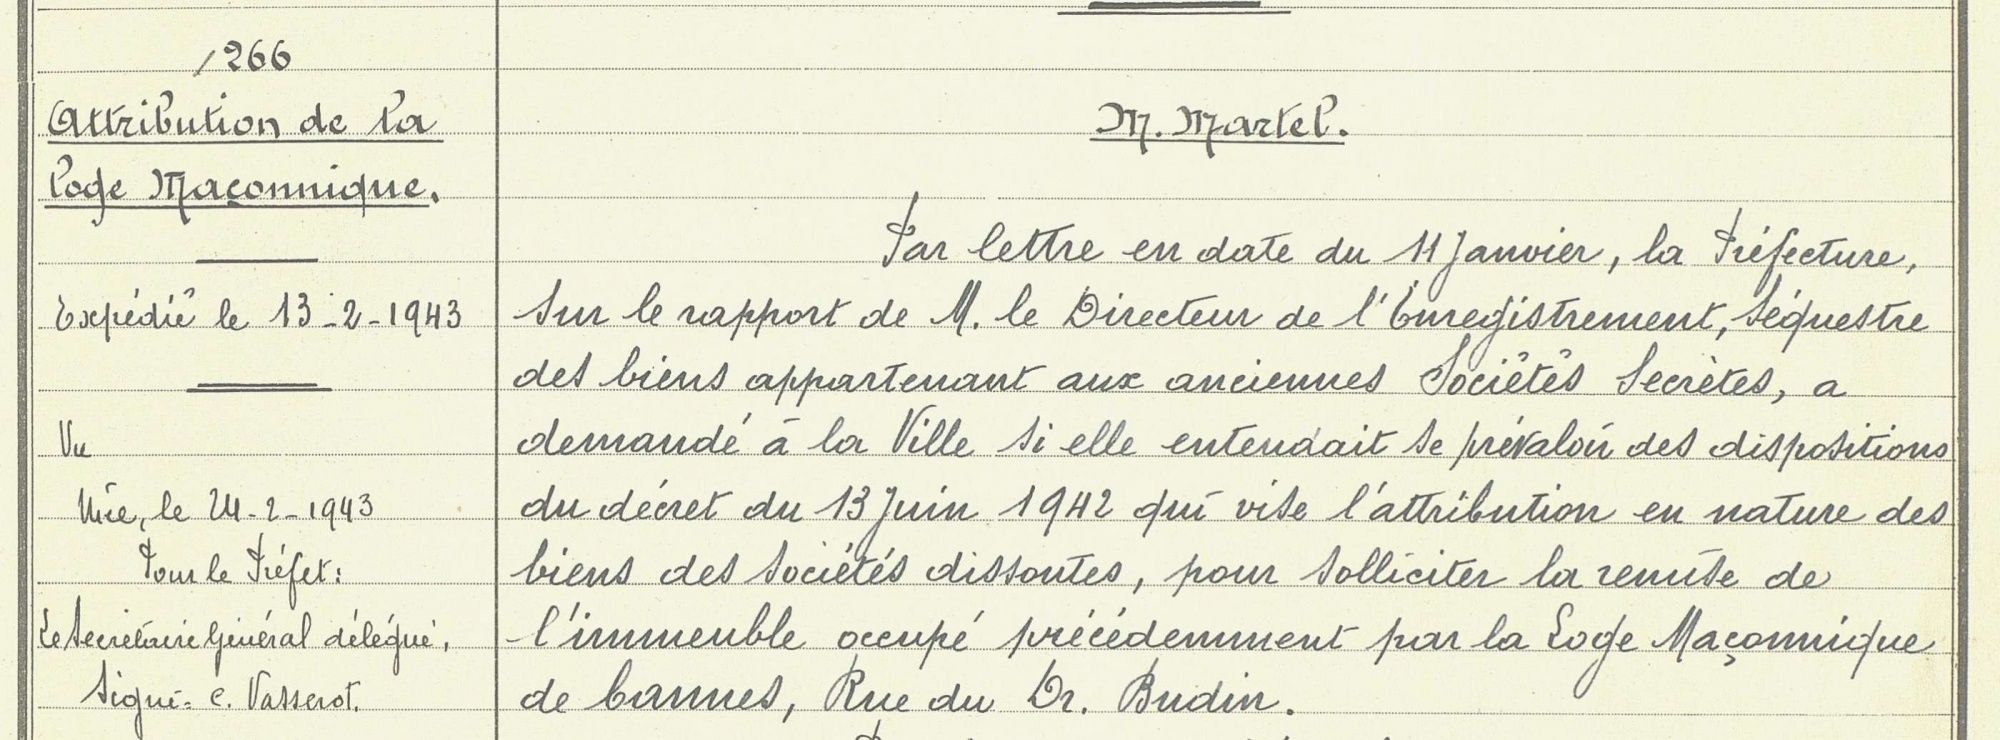 /266
Attribution de la
Loge Maçonnique.
Expédié le 13-2-1943
Vu
Nice, le 24-2-1943
Pour le Préfet:
Le Secrétaire Général délégué,
Signé: C. Vasserot.
M. Martel.
Par lettre en date du 11 Janvier, la Préfecture,
sur le rapport de M. le Directeur de l'Enregistrement, Séquestre
des biens appartenant aux anciennes Sociétés Secrètes, a
demandé à la Ville si elle entendait se prévaloir des dispositions
du décret du 13 Juin 1942 qui vise l'attribution en nature des
biens des sociétés dissoutes, pour solliciter la remise de
l'immeuble occupé précédemment par la Loge Maçonnique
de Cannes, Rue du Dr. Budin.